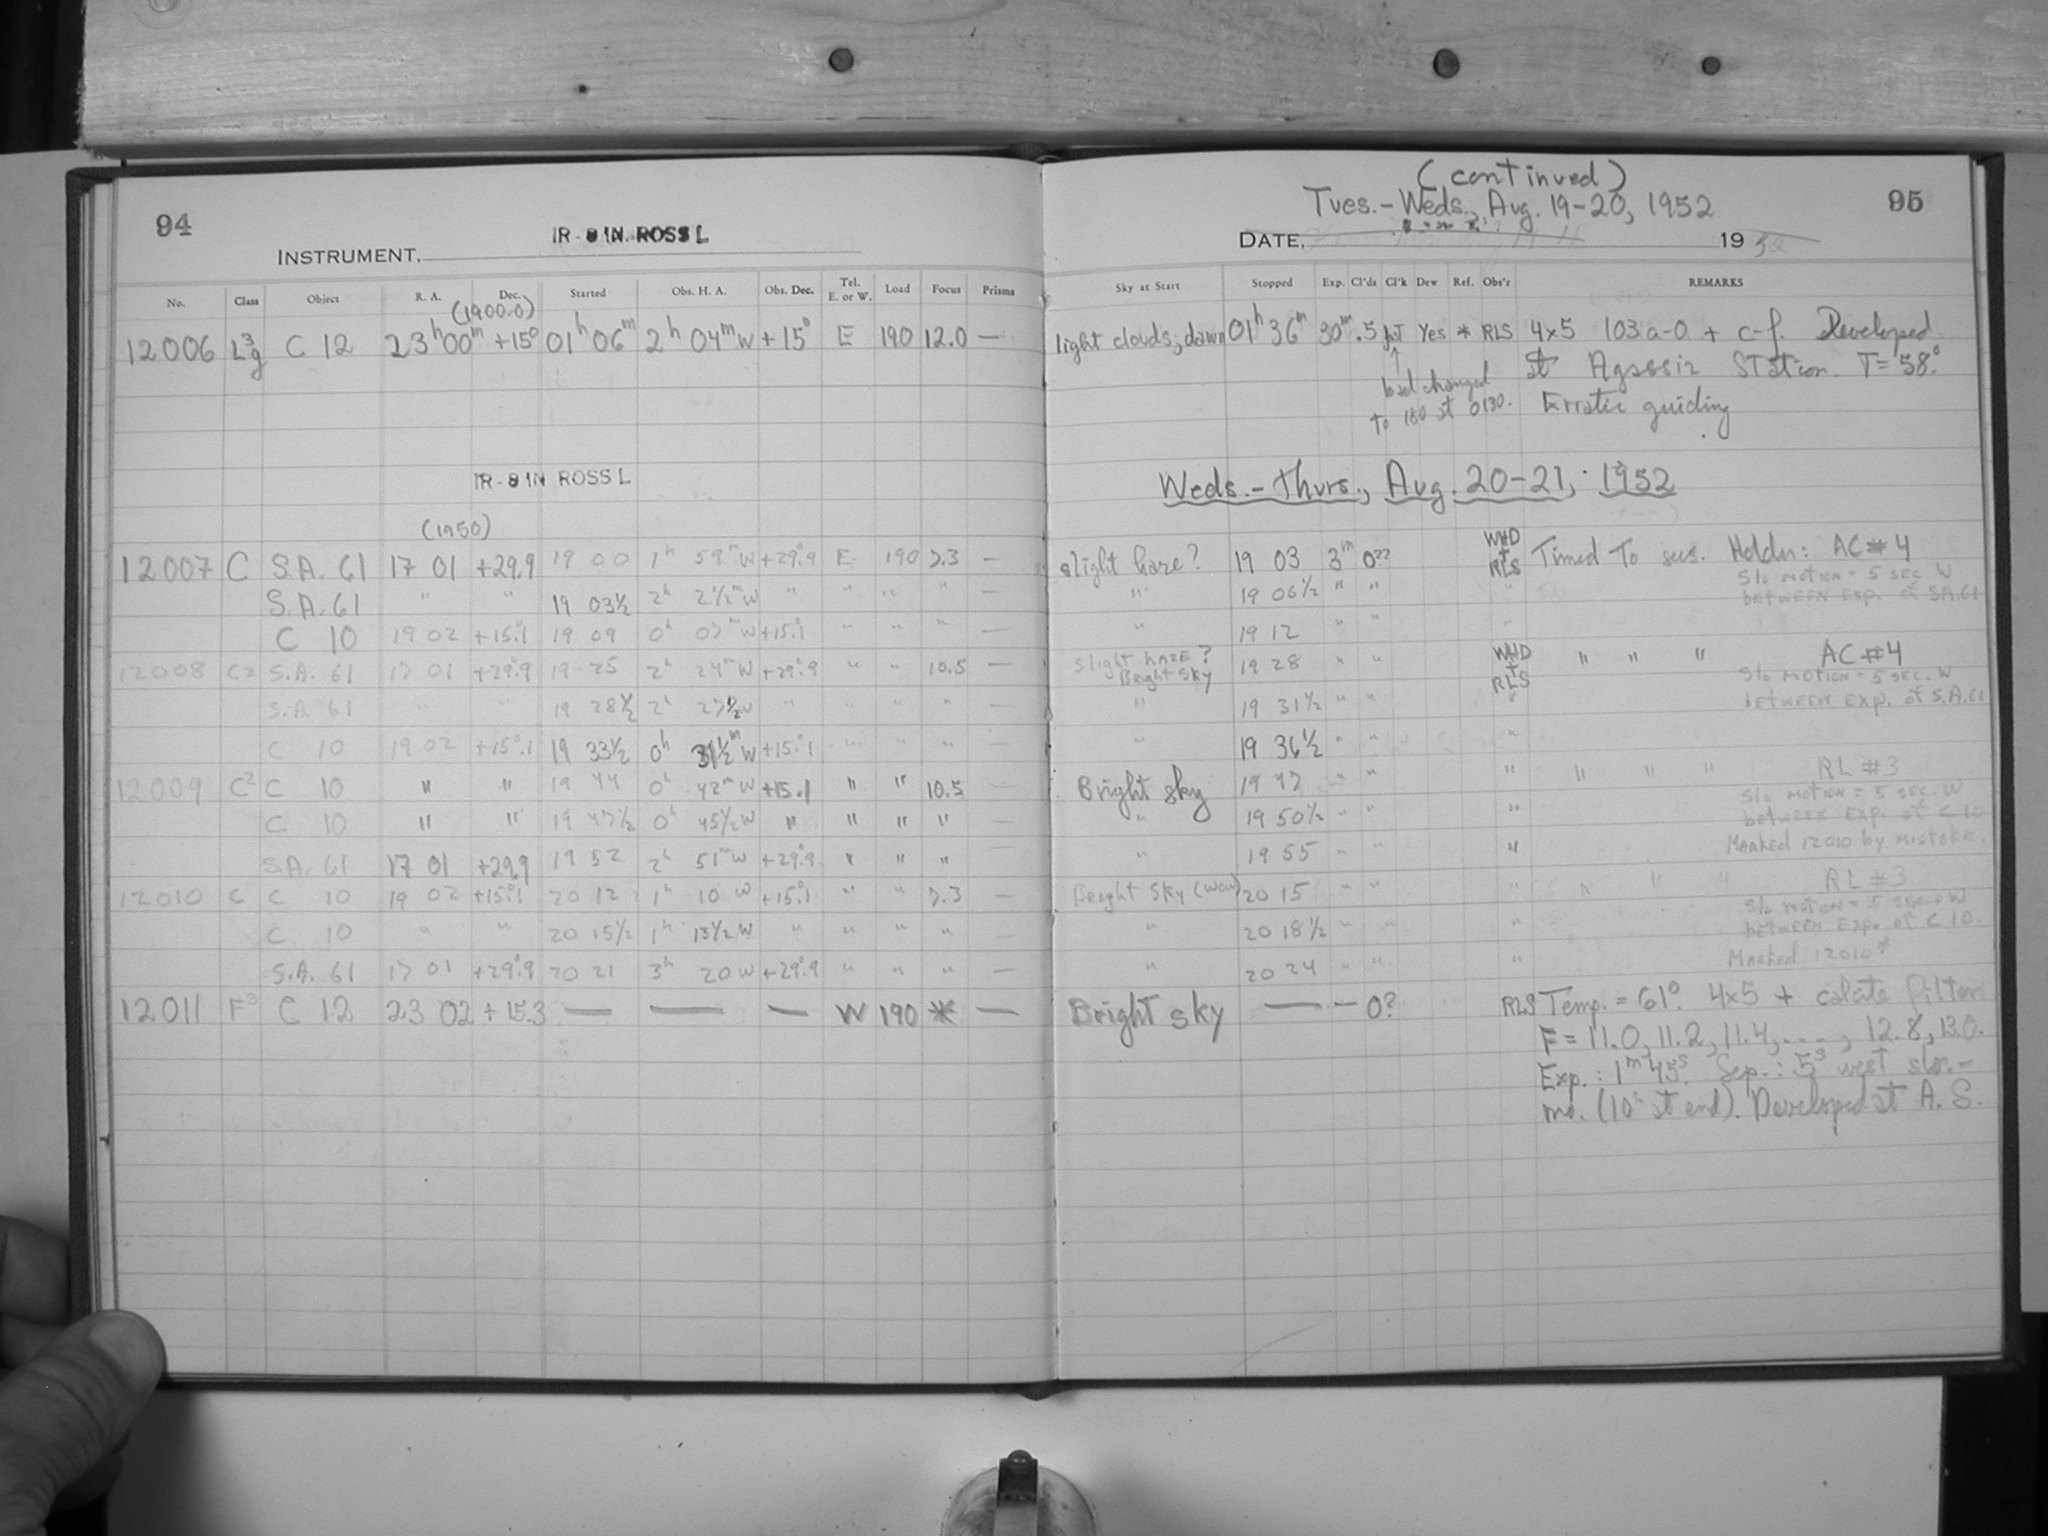 94
INSTRUMENT, IR - 8 IN. ROSS L
No. Class Object R. A. Dec. Started Obs. H. A. Obs. Dec. Tel. E. or W. Load Focus Prisms
(1900.0)
12006 L³g C 12 23ʰ 00ᵐ +15° 01ʰ 06ᵐ 2ʰ 04ᵐ W +15° E 190 12.0 —
IR - 8 IN ROSS L
(1950)
12007 C S.A. 61 17 01 +29.9 19 00 1ʰ 59ᵐ W +29°.9 E 190 7.3 —
S.A. 61 " " 19 03½ 2ʰ 2½ᵐ W " " " " —
C 10 19 02 +15°.1 19 09 0ʰ 07ᵐ W +15°.1 " " " —
12008 C2 S.A. 61 17 01 +29°.9 19 25 2ʰ 24ᵐ W +29°.9 " " 10.5 —
S.A. 61 " " 19 28½ 2ʰ 27½ W " " " " —
C 10 19 02 +15°.1 19 33½ 0ʰ 31½ᵐ W +15°.1 " " " —
12009 C² C 10 " " 19 44 0ʰ 42ᵐ W +15.1 " " 10.5 —
C 10 " " 19 47½ 0ʰ 45½ W " " " " —
S.A. 61 17 01 +29.9 19 52 2ʰ 51ᵐ W +29°.9 " " " —
12010 C C 10 19 02 +15°.1 20 12 1ʰ 10 W +15°.1 " " 7.3 —
C 10 " " 20 15½ 1ʰ 13½ W " " " " —
S.A. 61 17 01 +29°.9 20 21 3ʰ 20 W +29°.9 " " " —
12011 F³ C 12 23 02 +15.3 — — — W 190 * —
(continued)
Tues.-Weds., Aug. 19-20, 1952
95
DATE, 19
Sky at Start Stopped Exp. Cl'ds Cl'k Dew Ref. Obs'r REMARKS
light clouds; dawn 01ʰ 36ᵐ 30ᵐ .5 Yes * RLS 4x5 103a-O + c-f. Developed
at Agassiz Station. T=58°.
load changed
to 180 at 0130. Erratic guiding
Weds.-Thurs., Aug. 20-21, 1952
slight haze? 19 03 3ᵐ 0?? WHD + RLS Timed to sec. Holder: AC#4
Slo MOTION = 5 SEC W
" 19 06½ " " " BETWEEN EXP. of S.A.61
" 19 12 " " "
Slight HAZE? 19 28 " " WHD + RLS " " " AC#4
Bright Sky
Slo MOTION = 5 SEC. W
" 19 31½ " " " BETWEEN EXP. of S.A.61
" 19 36½ " " "
Bright sky 19 47 " " " " " " RL #3
Slo MOTION = 5 SEC. W
" 19 50½ " " " BETWEEN EXP. of C 10
" 19 55 " " " MARKED 12010 by MISTAKE.
Bright Sky 20 15 " " " " " " RL #3
Slo MOTION = 5 SEC W
" 20 18½ " " " BETWEEN EXP. of C 10.
" 20 24 " " " MARKED 12010*
Bright sky — — 0? RLS Temp. = 61°. 4x5 + calcite filter
F = 11.0, 11.2, 11.4, ...., 12.8, 13.0.
Exp.: 1ᵐ45ˢ. Sep.: 5ˢ west slo.-
mo. (10ˢ at end). Developed at A. S.